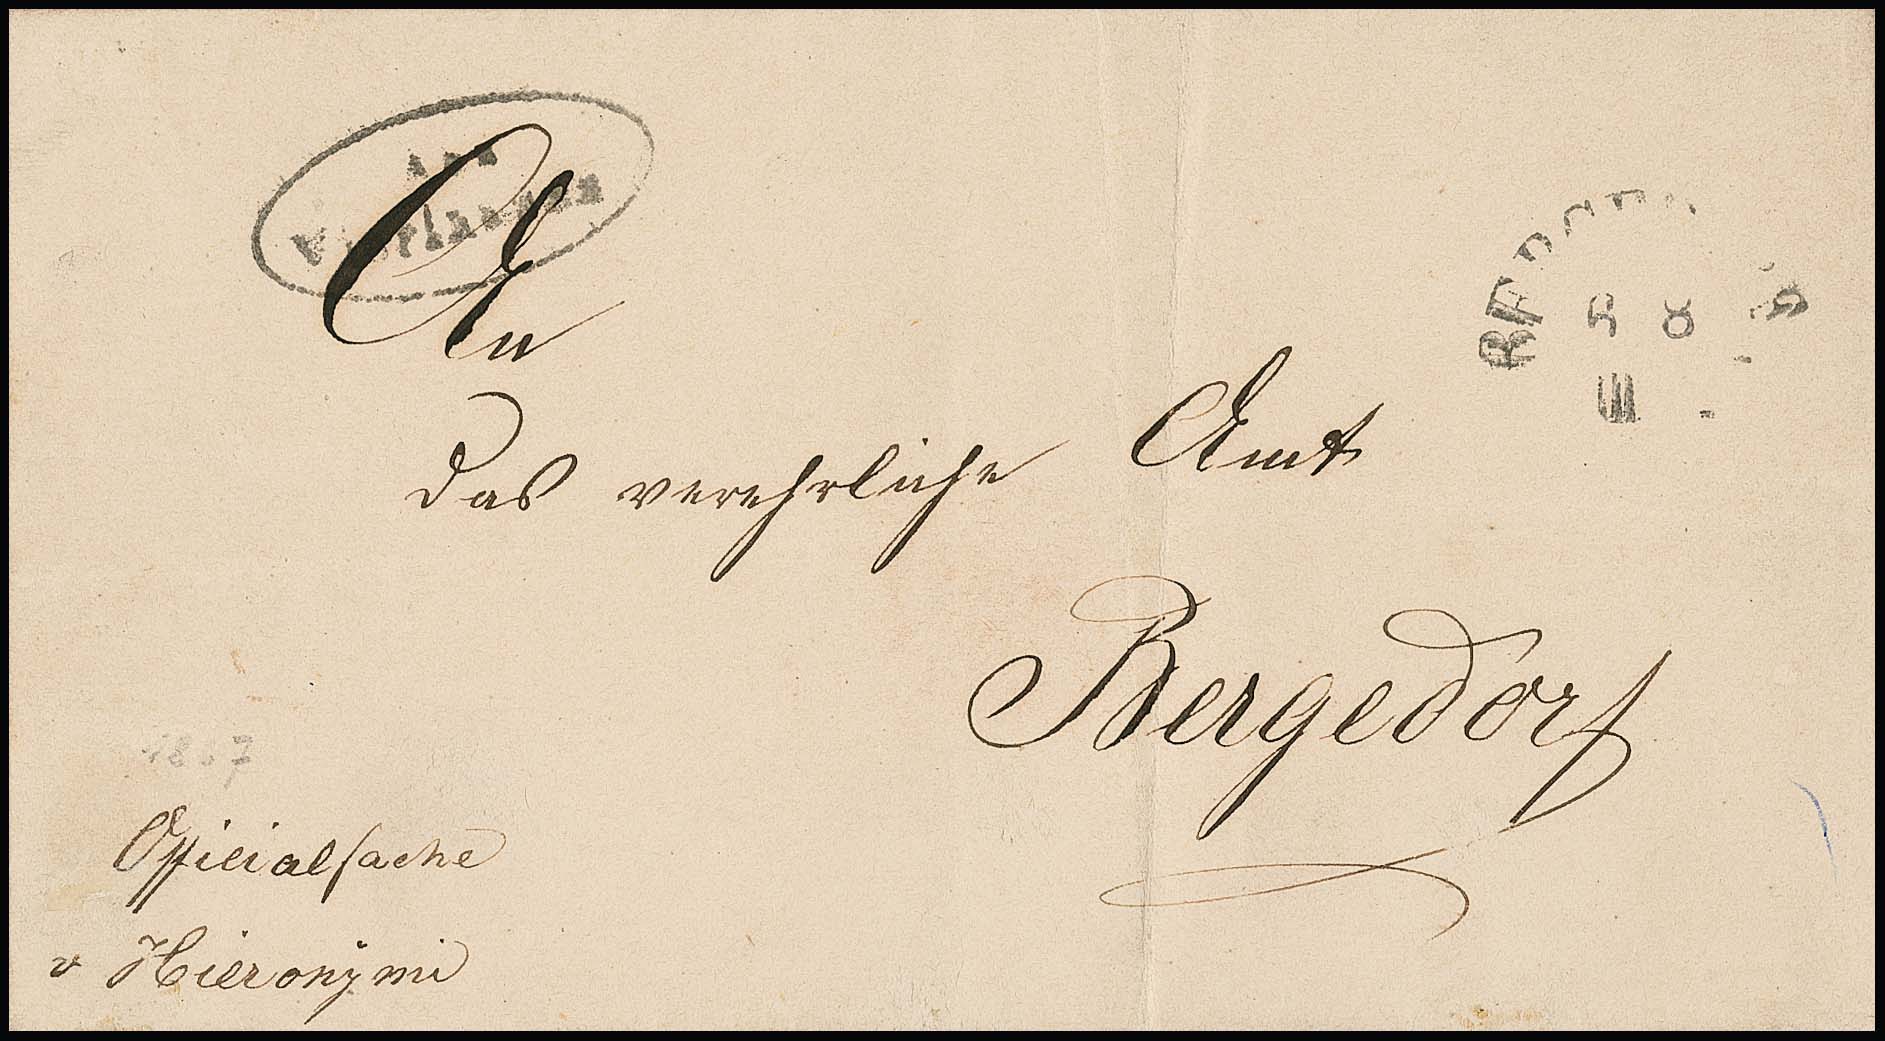 Aus
Vierlanden
An
das verehrliche Amt
Bergedorf
1867
Officialsache
v Hieronÿmi